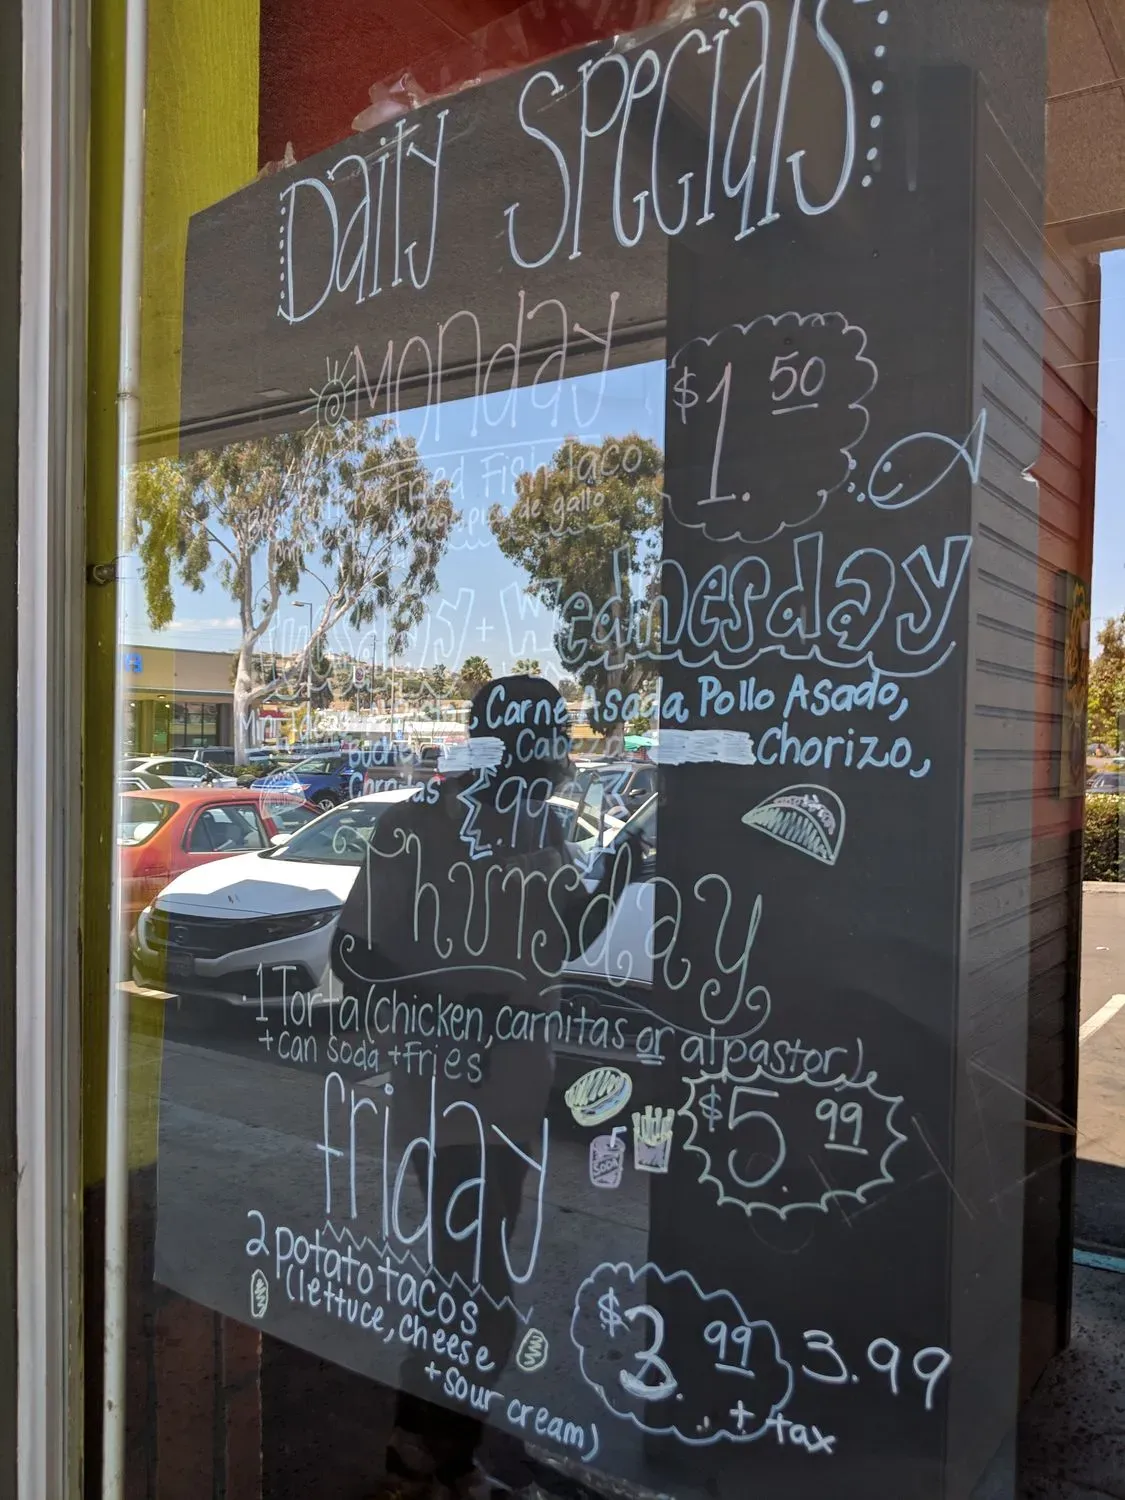 Daily Specials
Monday
$1.50
Fried Fish Taco
de gallo
Tuesday + Wednesday
, Carne Asada, Pollo Asado,
, Cabeza Chorizo,
Carnitas .99¢
Thursday
1 Torta (chicken, carnitas or al pastor)
+ can soda + fries
$5.99
Soda
friday
2 potato tacos
(lettuce, cheese
+ sour cream)
$3.99 3.99
+ tax